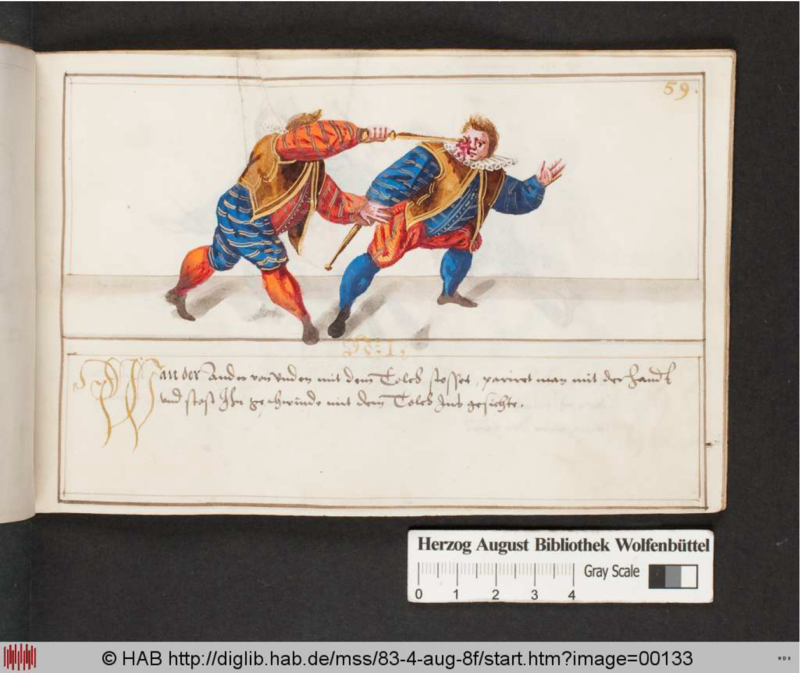 59.
N: 1.
Wan der Ander von unden mit dem Tolch stosset, parirt man mit der handt
und stost Ihn geschwinde mit dem Tolch Ins gesichte.
Herzog August Bibliothek Wolfenbüttel
Gray Scale
0 1 2 3 4
© HAB http://diglib.hab.de/mss/83-4-aug-8f/start.htm?image=00133